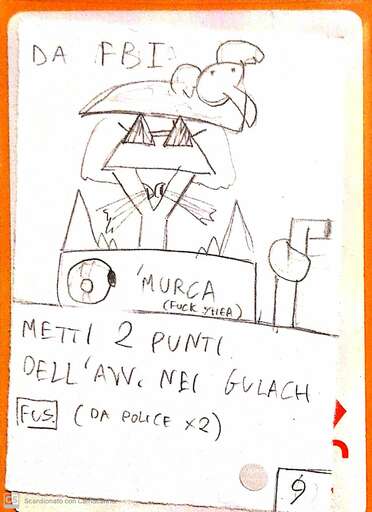 DA FBI
'MURCA
(FUCK YHEA)
METTI 2 PUNTI
DELL'AVV. NEI GULACH
FUS. (DA POLICE x2)
9
CS Scansionato con CamScanner